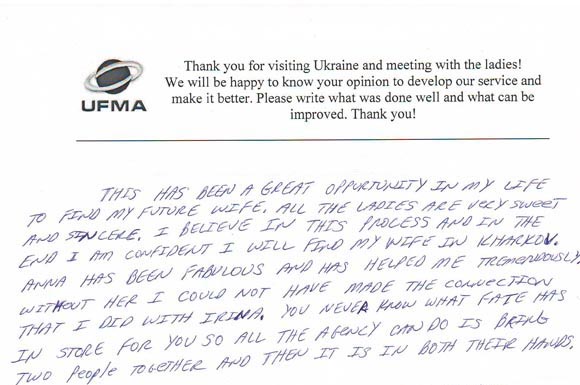 UFMA
Thank you for visiting Ukraine and meeting with the ladies!
We will be happy to know your opinion to develop our service and
make it better. Please write what was done well and what can be
improved. Thank you!
THIS HAS BEEN A GREAT OPPORTUNITY IN MY LIFE
TO FIND MY FUTURE WIFE. ALL THE LADIES ARE VERY SWEET
AND SINCERE. I BELIEVE IN THIS PROCESS AND IN THE
END I AM CONFIDENT I WILL FIND MY WIFE IN KHARKOV.
ANNA HAS BEEN FABULOUS AND HAS HELPED ME TREMENDOUSLY,
WITHOUT HER I COULD NOT HAVE MADE THE CONNECTION
THAT I DID WITH IRINA. YOU NEVER KNOW WHAT FATE HAS
IN STORE FOR YOU SO ALL THE AGENCY CAN DO IS BRING
TWO PEOPLE TOGETHER AND THEN IT IS IN BOTH THEIR HANDS.